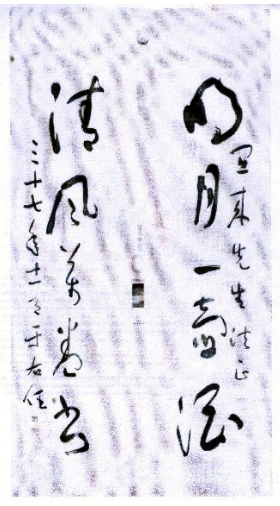 宜来先生法正
明月一壺酒
清風萬卷書
三十七年十一月于右任